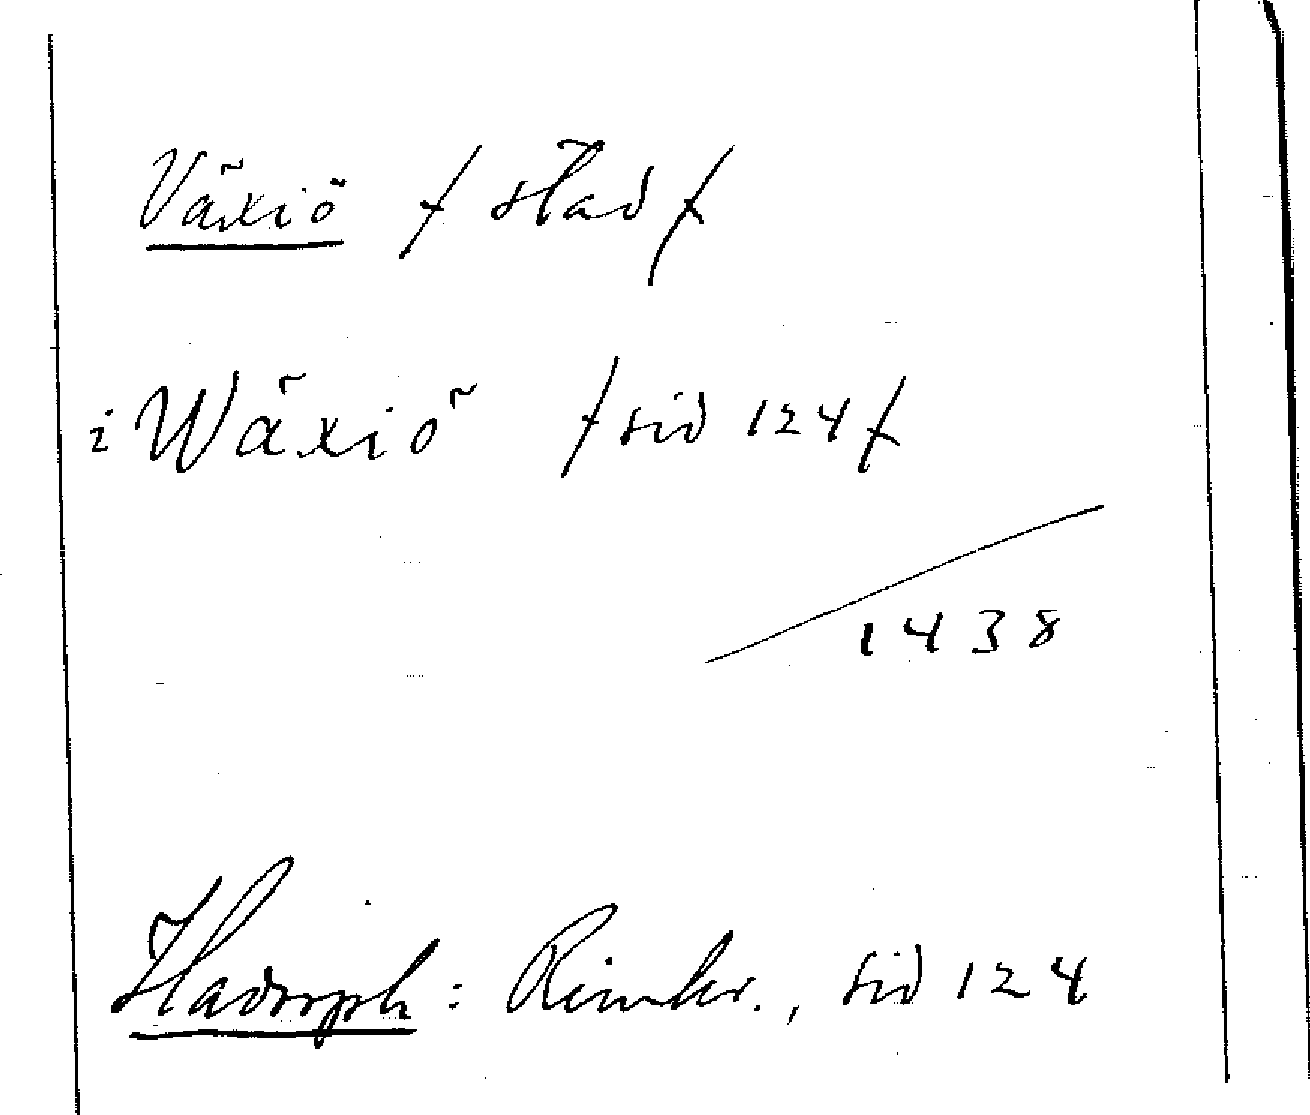 Växiö / stad /
i Wäxiö / sid 124 /
1438
Hadorph: Rimkr., sid 124